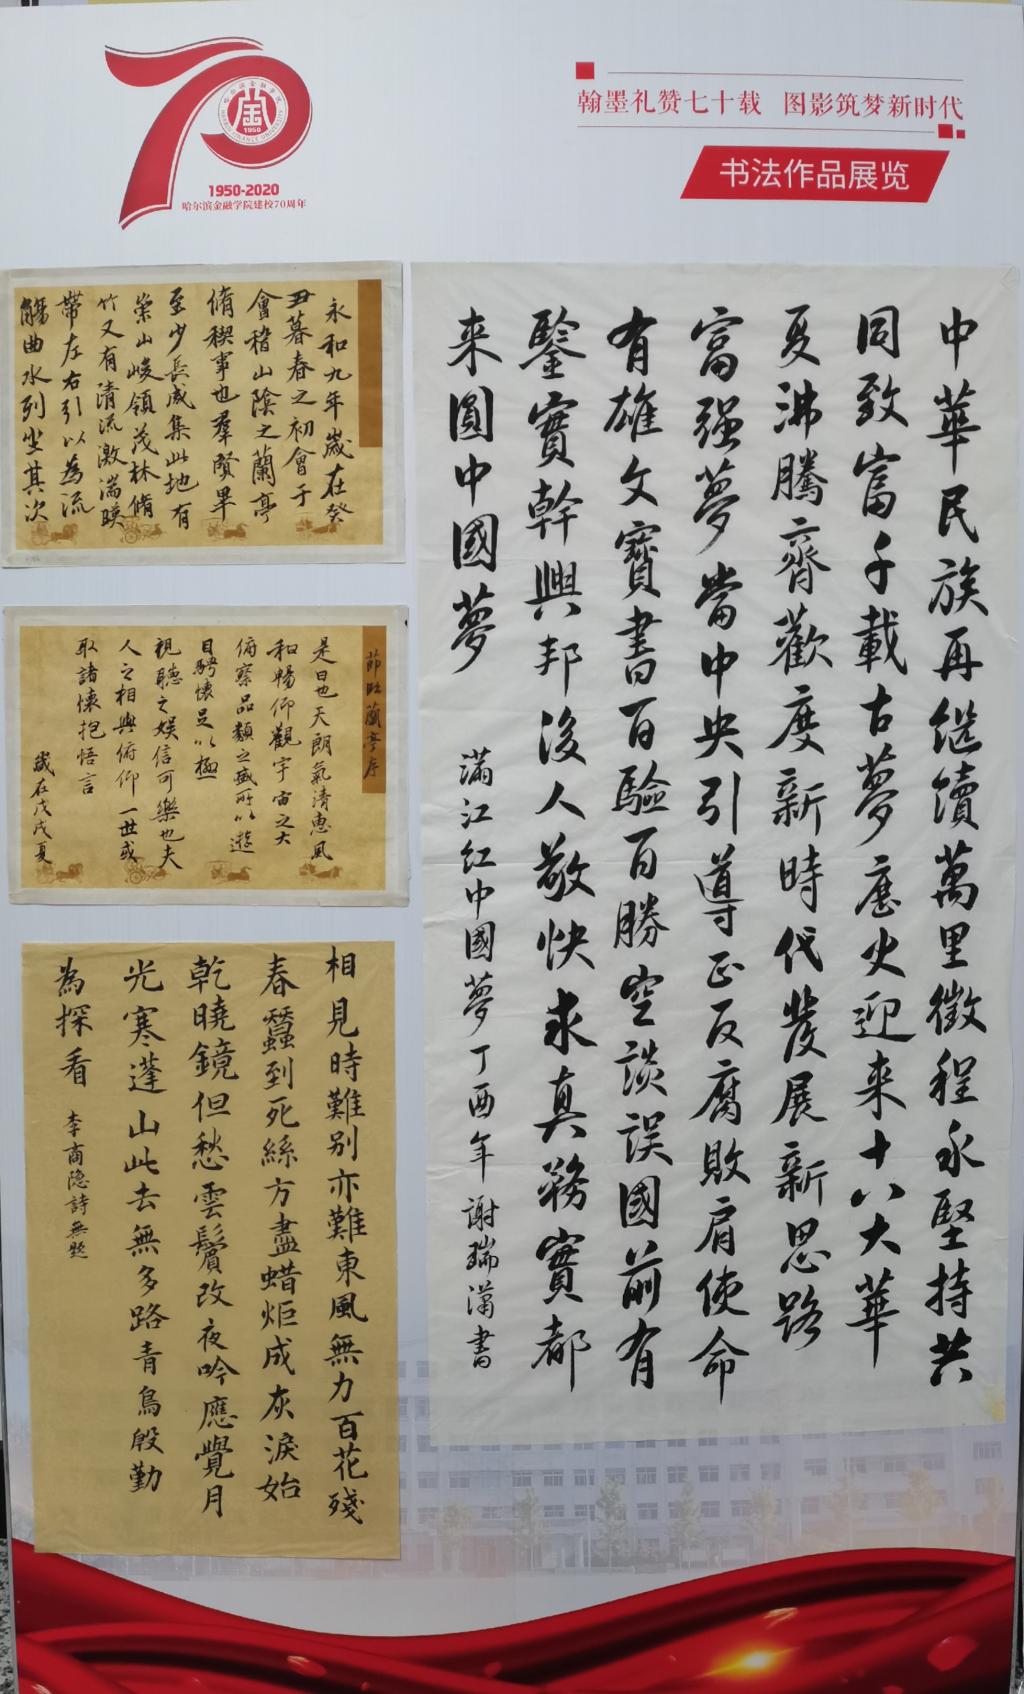 哈尔滨金融学院
HARBIN FINANCE UNIVERSITY
1950
1950-2020
哈尔滨金融学院建校70周年
翰墨礼赞七十载 图影筑梦新时代
书法作品展览
永和九年歲在癸
丑暮春之初會于
會稽山陰之蘭亭
脩稧事也羣賢畢
至少長咸集此地有
崇山峻領茂林脩
竹又有清流激湍暎
帶左右引以為流
觴曲水列坐其次
節臨蘭亭序
是日也天朗氣清惠風
和暢仰觀宇宙之大
俯察品類之盛所以遊
目騁懷足以極
視聽之娱信可樂也夫
人之相與俯仰一世或
取諸懷抱悟言
歲在戊戌夏
相見時難别亦難東風無力百花殘
春蠶到死絲方盡蜡炬成灰淚始
乾曉鏡但愁雲鬢改夜吟應覺月
光寒蓬山此去無多路青鳥殷勤
為探看
李商隐詩無題
中華民族再继续萬里徵程永堅持共
同致富千載古夢歷火迎来十八大華
夏沸騰齊歡度新時代發展新思路
富强夢當中央引導正反腐敗肩使命
有雄文寳書百驗百勝空談誤國前有
鑒實幹興邦後人敬快求真務實都
来圓中國夢
滿江红中國夢丁酉年謝瑞瀟書